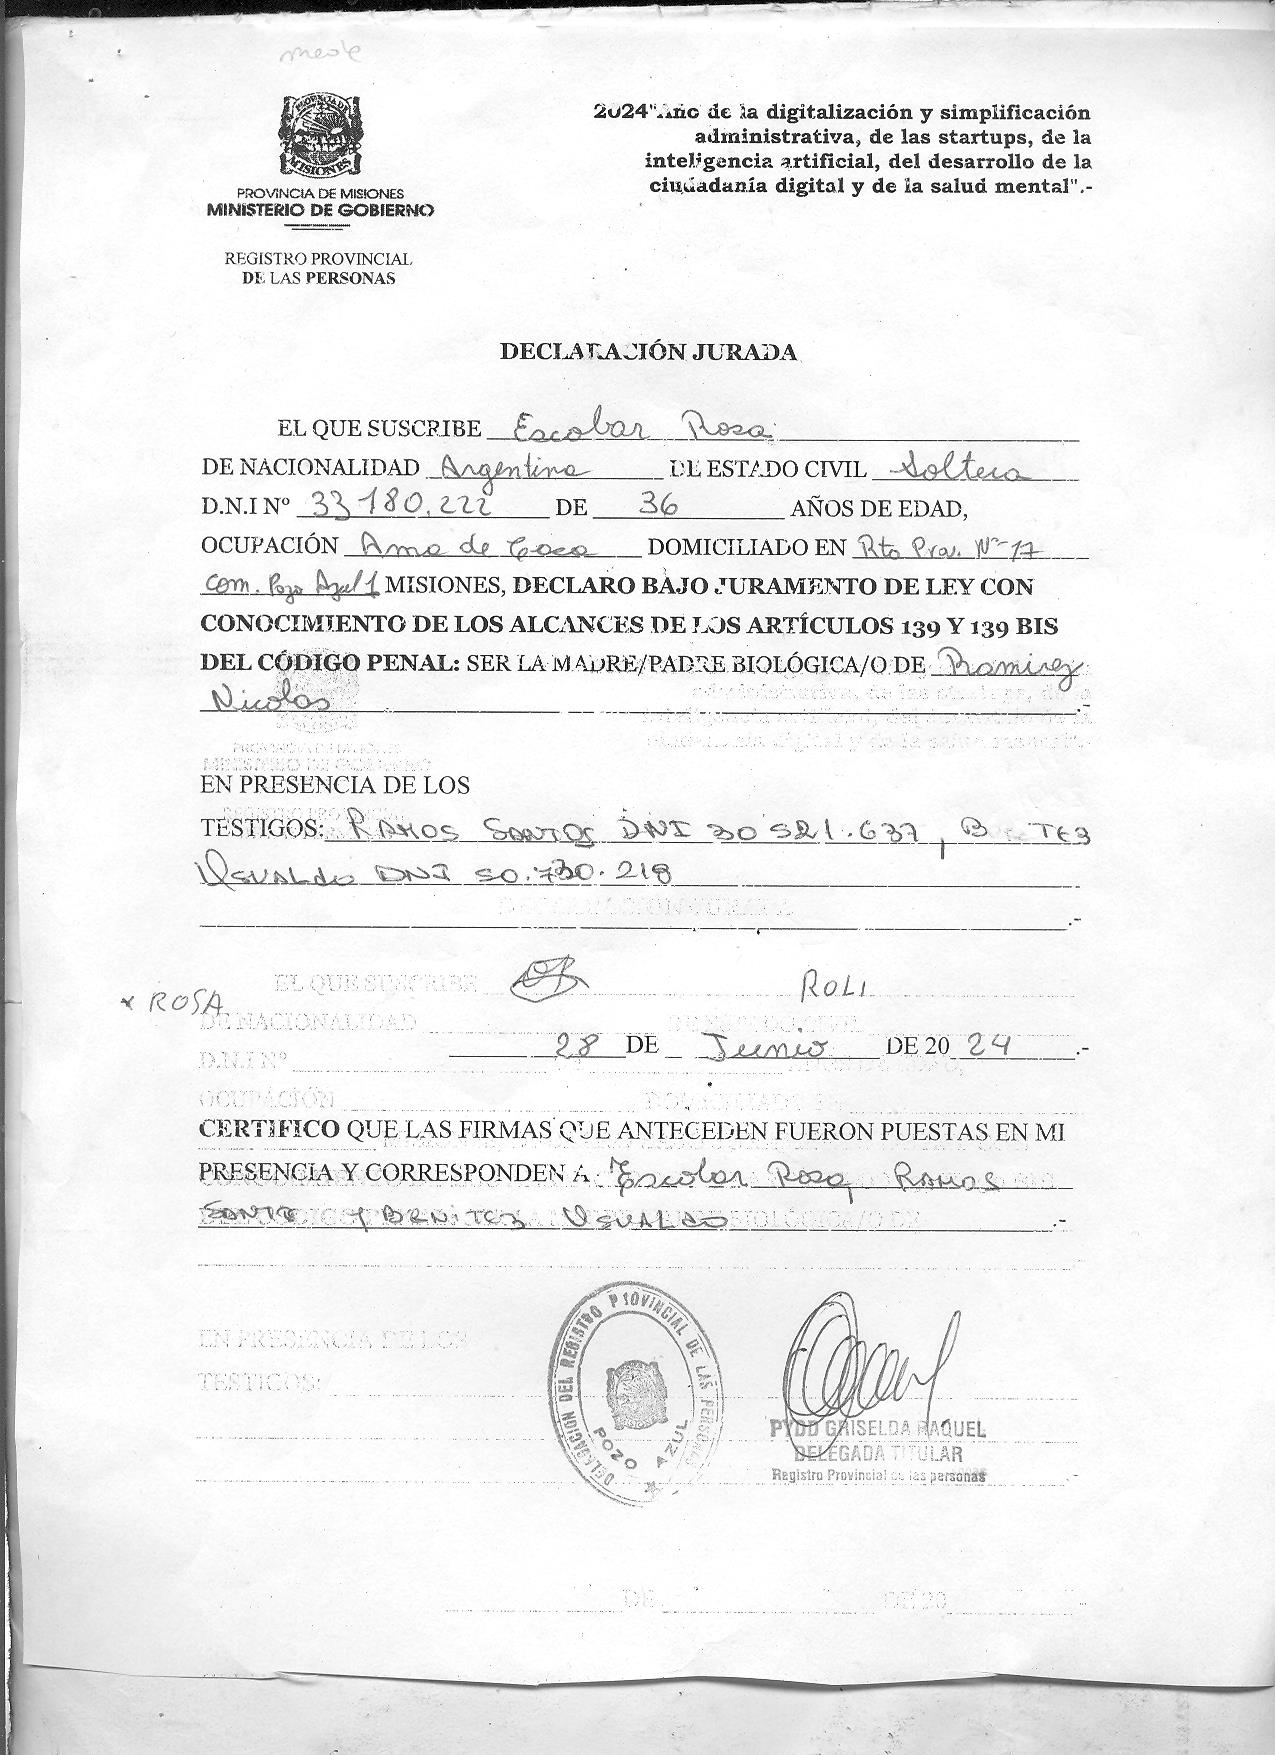 PROVINCIA DE MISIONES
MINISTERIO DE GOBIERNO
REGISTRO PROVINCIAL
DE LAS PERSONAS
2024"Año de la digitalización y simplificación
administrativa, de las startups, de la
inteligencia artificial, del desarrollo de la
ciudadanía digital y de la salud mental".-
DECLARACIÓN JURADA
EL QUE SUSCRIBE Escobar Rosa
DE NACIONALIDAD Argentina DE ESTADO CIVIL Soltera
D.N.I Nº 33 180.222 DE 36 AÑOS DE EDAD,
OCUPACIÓN Ama de Casa DOMICILIADO EN Rta Prov. Nº 17
Com. Pozo Azul 1 MISIONES, DECLARO BAJO JURAMENTO DE LEY CON
CONOCIMIENTO DE LOS ALCANCES DE LOS ARTÍCULOS 139 Y 139 BIS
DEL CÓDIGO PENAL: SER LA MADRE/PADRE BIOLÓGICA/O DE Ramirez
Nicolas .-
EN PRESENCIA DE LOS
TESTIGOS: RAMOS SANTOS DNI 30 521.637, B TEZ
OSVALDO DNI 50.730.218
.-
EL QUE SUSCRIBE ROLI
x ROSA
DE NACIONALIDAD
28 DE Junio DE 20 24 .-
D.N.I Nº
OCUPACIÓN
CERTIFICO QUE LAS FIRMAS QUE ANTECEDEN FUERON PUESTAS EN MI
PRESENCIA Y CORRESPONDEN A Escobar Rosa, RAMOS
SANTO Y BENITEZ OSVALDO .-
EN PRESENCIA DE LOS
TESTIGOS:
DELEGACION DEL REGISTRO PROVINCIAL DE LAS PERSONAS
POZO AZUL
GRISELDA RAQUEL
DELEGADA TITULAR
Registro Provincial de las personas
DE DE 20 .-